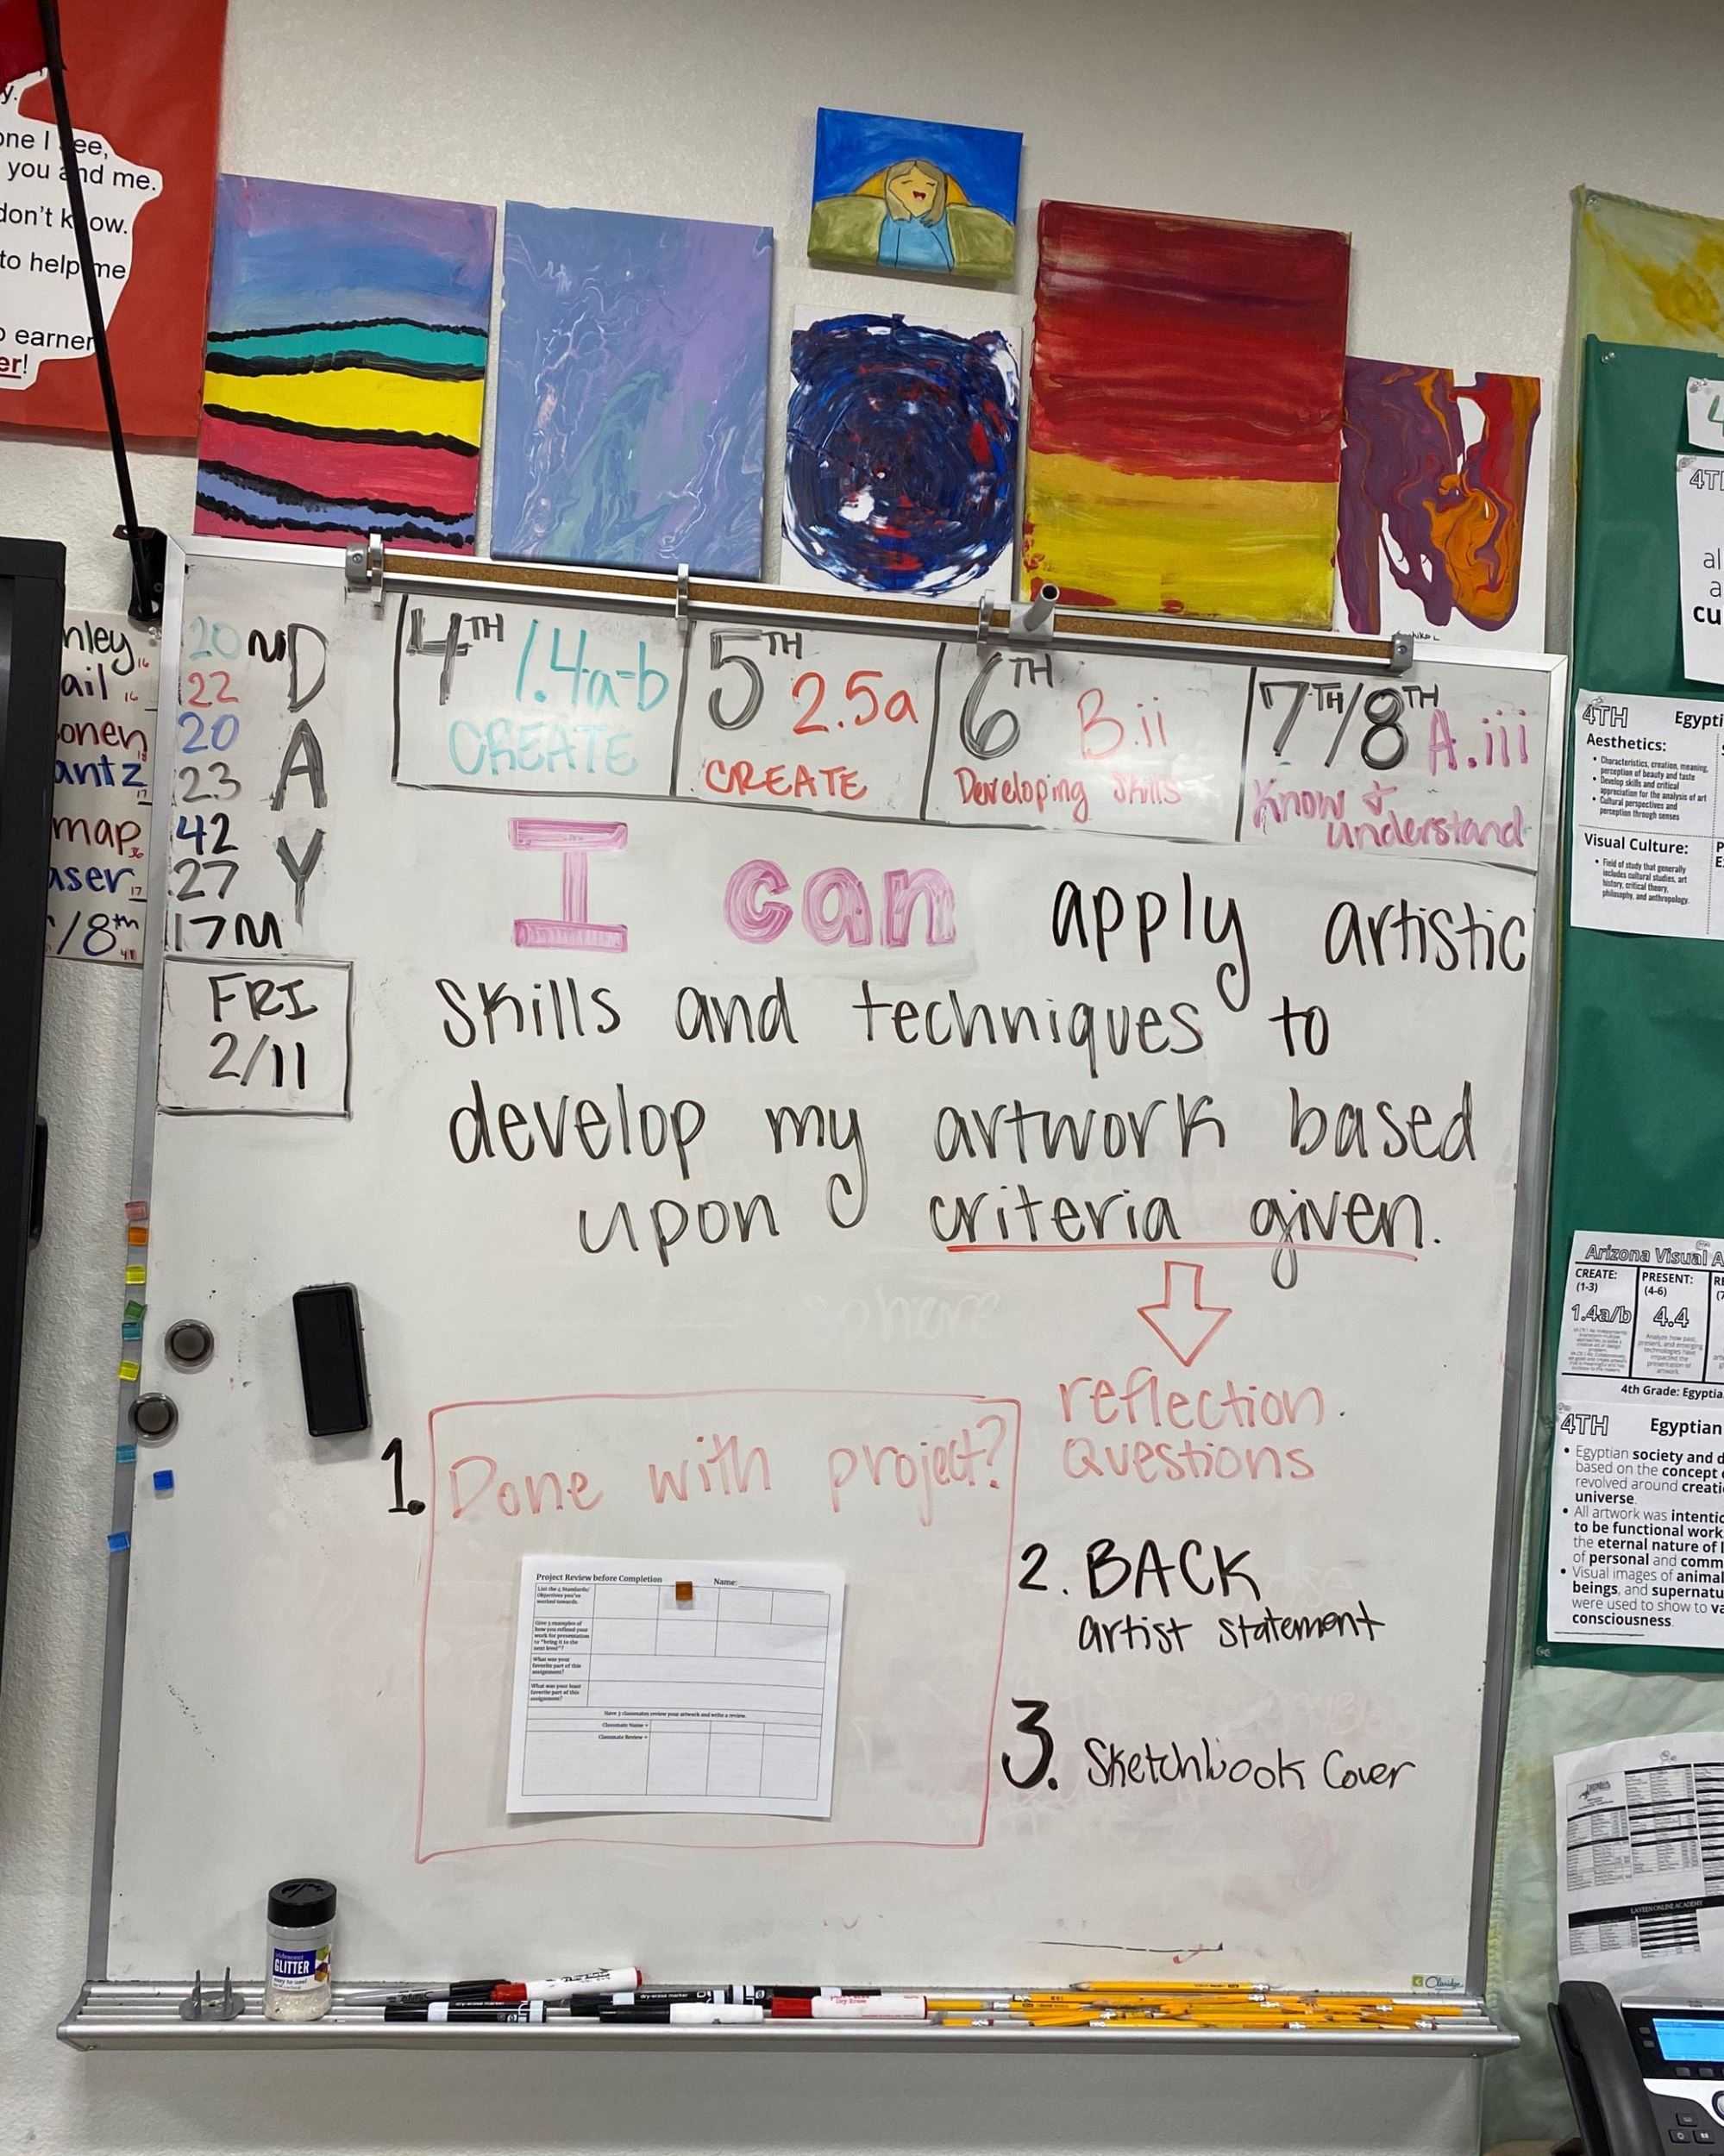 y.
one I see,
you and me.
don't know.
to help me
o earner
er!
nley 16
ail 16
onen 18
antz 17
map 36
aser 17
/8th
20 N
22
20
23
42
27
17M
D
A
Y
FRI
2/11
4TH 1.4a-b
CREATE
5TH 2.5a
CREATE
6TH B.ii
Developing Skills
7TH/8TH A.iii
Know +
understand
I can apply artistic
skills and techniques to
develop my artwork based
upon criteria given.
reflection
Questions
1. Done with project?
Project Review before Completion Name:
List the 4 Standards/
Objectives you've
worked towards.
Give 3 examples of
how you refined your
work for presentation
to "bring it to the
next level"?
What was your
favorite part of this
assignment?
What was your least
favorite part of this
assignment?
Have 3 classmates review your artwork and write a review.
Classmate Name
Classmate Review
2. BACK
artist statement
3. Sketchbook Cover
GLITTER
4
4TH
al
a
cu
4TH Egypti
Aesthetics:
• Characteristics, creation, meaning,
perception of beauty and taste
• Develop skills and critical
appreciation for the analysis of art
• Cultural perspectives and
perception through senses
Visual Culture:
• Field of study that generally
includes cultural studies, art
history, critical theory,
philosophy, and anthropology.
Arizona Visual A
CREATE:
(1-3)
1.4a/b
PRESENT:
(4-6)
4.4
Analyze how past,
present, and emerging
technologies have
impacted the
presentation of
artwork.
4th Grade: Egyptia
4TH Egyptian
• Egyptian society and d
based on the concept o
revolved around creati
universe.
• All artwork was intentio
to be functional work
the eternal nature of l
of personal and comm
• Visual images of animal
beings, and supernatu
were used to show to va
consciousness.
LAVEEN ONLINE ACADEMY
Claridge